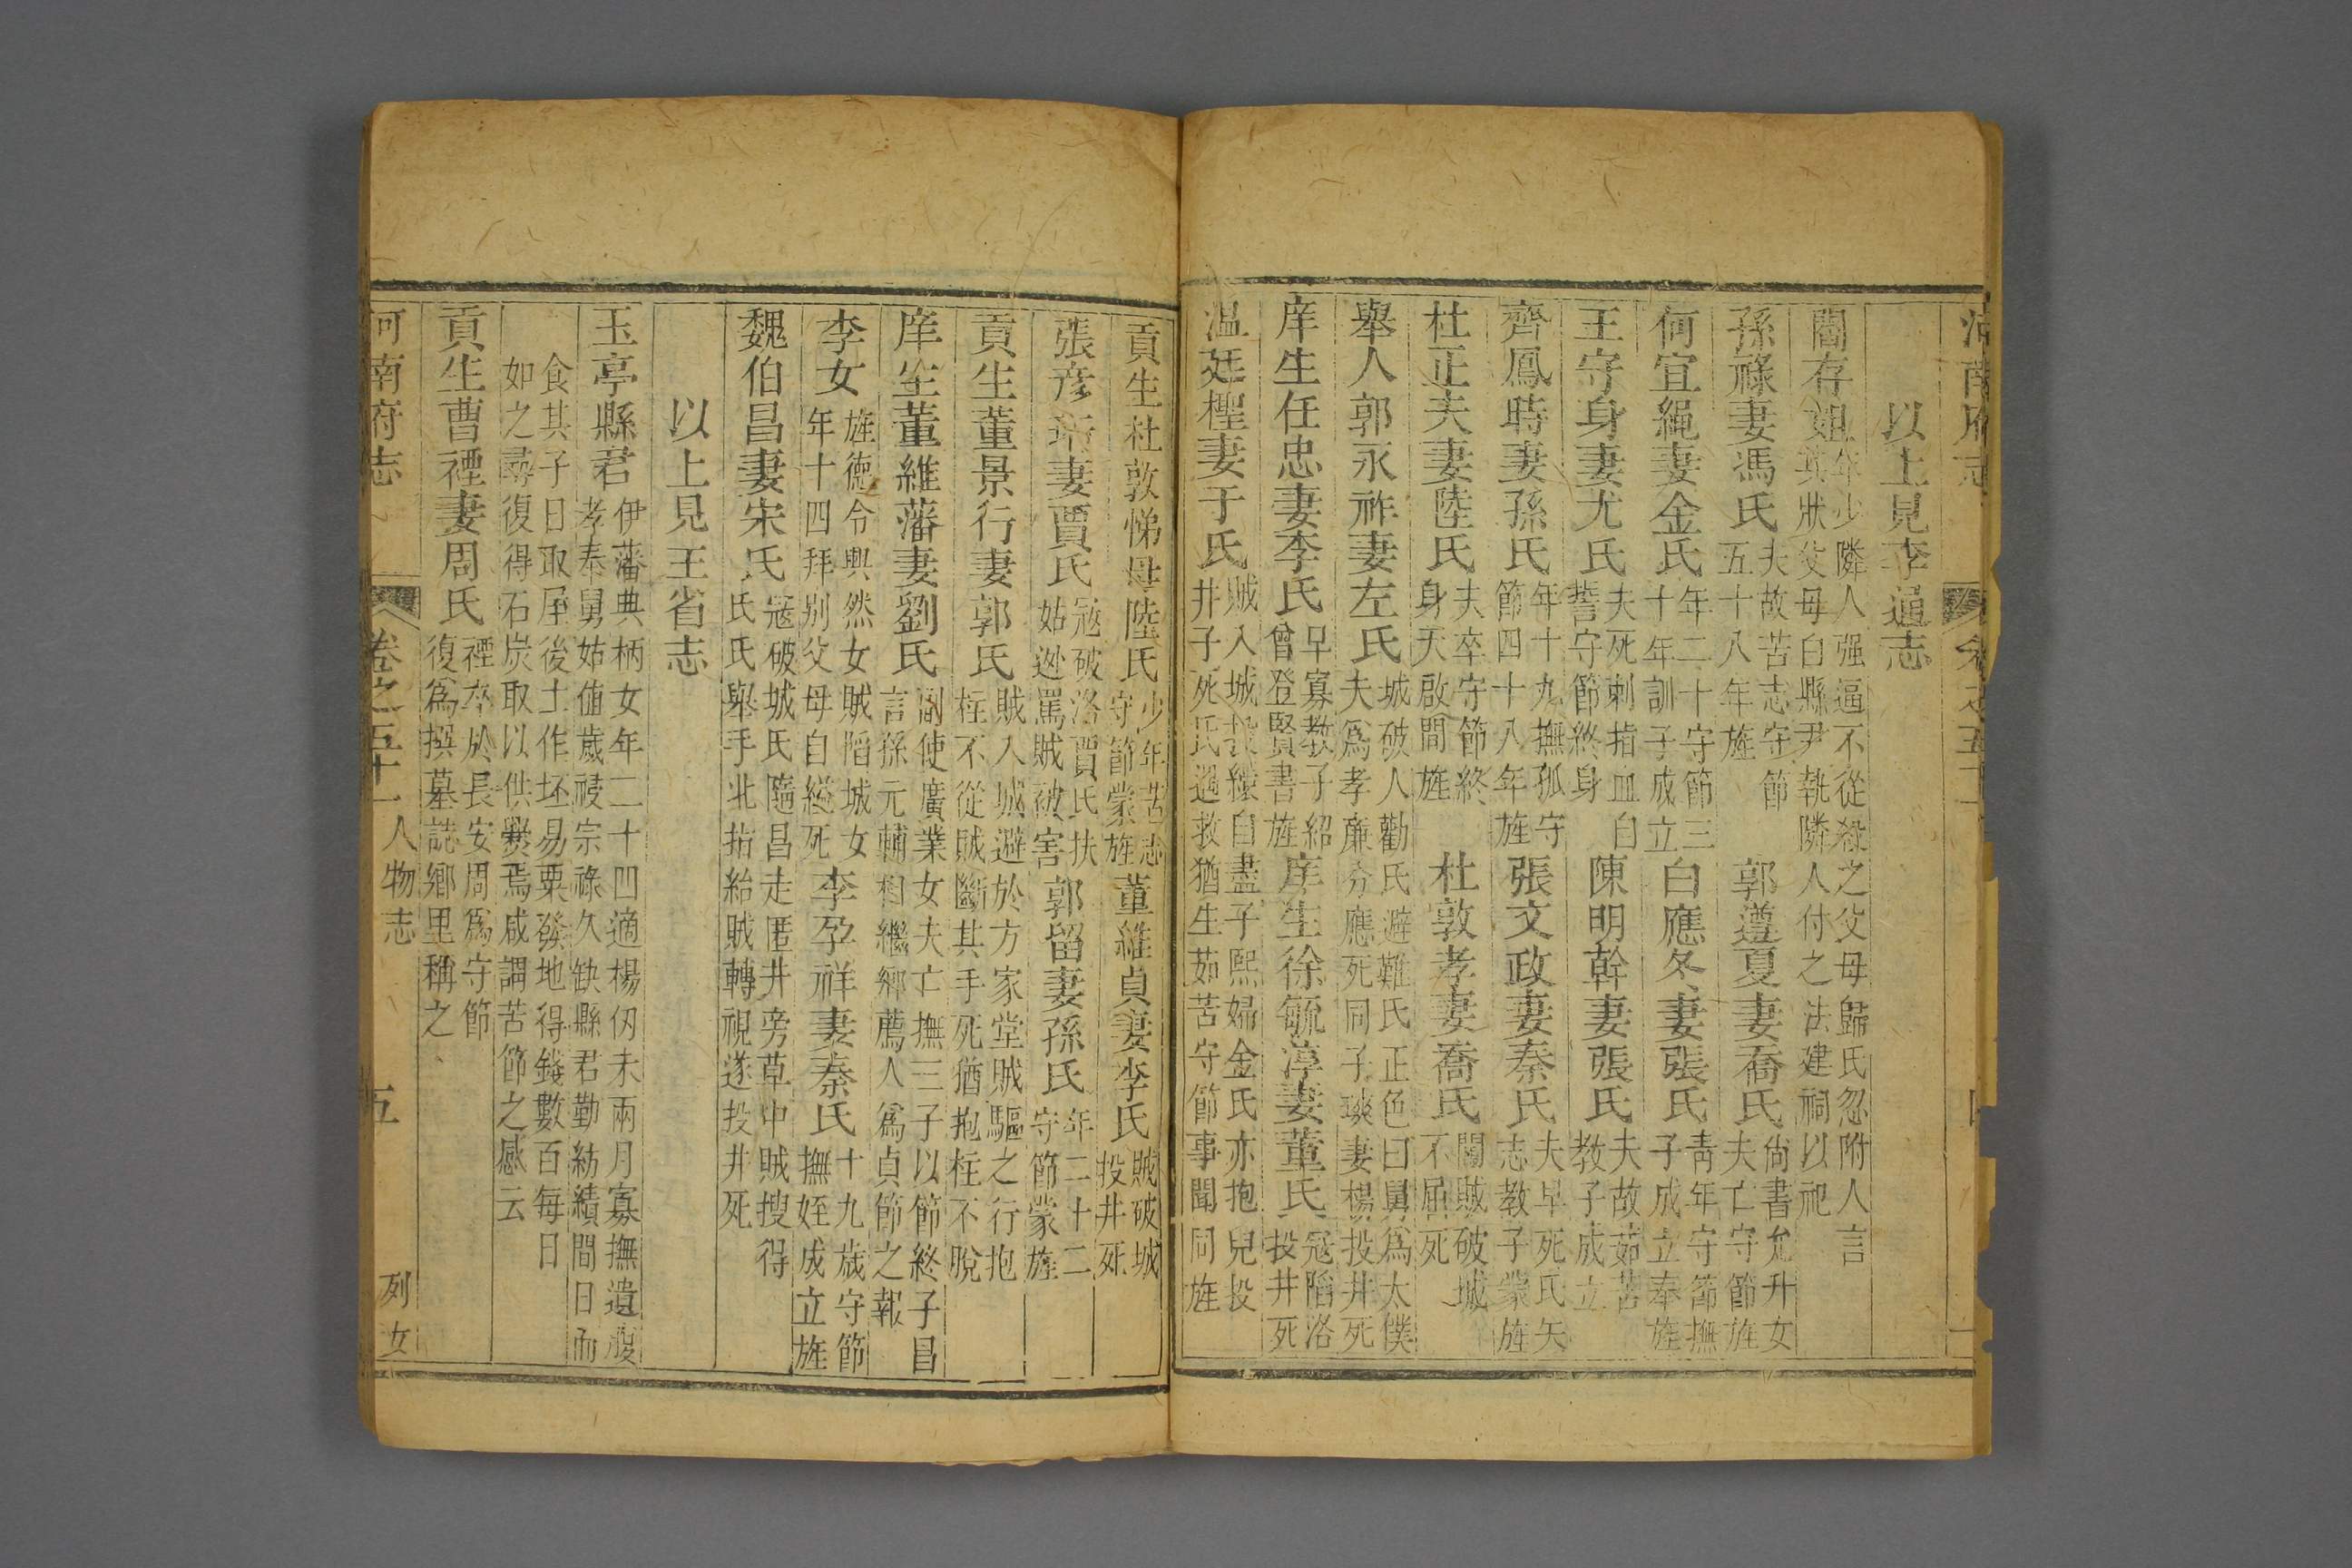 以上見李通志
閻存姐年少隣人强逼不從殺之父母歸氏忽附人言
其狀父母白縣尹執隣人付之法建祠以祀
孫祿妻馮氏夫故苦志守節
五十八年旌
郭遵夏妻喬氏尙書允升女
夫亡守節旌
何宜繩妻金氏年二十守節三
十年訓子成立
白應冬妻張氏靑年守節撫
子成立奉旌
王守身妻尤氏夫死刺指血自
誓守節終身
陳明幹妻張氏夫故茹苦
教子成立
齊鳳時妻孫氏年十九撫孤守
節四十八年旌
張文政妻秦氏夫早死氏矢
志教子蒙旌
杜正夫妻陸氏夫卒守節終
身天啟間旌
杜敦孝妻喬氏闖賊破城
不屈死
舉人郭永祚妻左氏城破人勸氏避難氏正色曰舅爲太僕
夫爲孝廉分應死同子琰妻楊投井死
庠生任忠妻李氏早寡教子紹
曾登賢書旌
庠生徐毓淳妻董氏寇陷洛
投井死
溫廷檉妻于氏賊入城投繯自盡子熙婦金氏亦抱兒投
井子死氏遇救猶生茹苦守節事聞同旌
貢生杜敦悌母陸氏少年苦志
守節蒙旌
董維貞妻李氏賊破城
投井死
張彥 妻賈氏寇破洛賈氏扶
姑逃罵賊被害
郭留妻孫氏年二十二
守節蒙旌
貢生董景行妻郭氏賊入城避於方家堂賊驅之行抱
柱不從賊斷其手死猶抱柱不脫
庠生董維藩妻劉氏副使廣業女夫亡撫三子以節終子昌
言孫元輔相繼鄉薦人爲貞節之報
李女旌德令興然女賊陷城女
年十四拜别父母自縊死
李孕祥妻秦氏十九歲守節
撫姪成立旌
魏伯昌妻宋氏寇破城氏隨昌走匿井旁草中賊搜得
氏氏舉手北指紿賊轉視遂投井死
以上見王省志
玉亭縣君伊藩典柄女年二十四適楊仞未兩月寡撫遺腹
孝奉舅姑値歲祲宗祿久缺縣君勤紡績間日而
食其子日取屋後土作坯易粟發地得錢數百每日
如之尋復得石炭取以供爨焉咸謂苦節之感云
貢生曹禋妻周氏禋卒於長安周爲守節
復爲撰墓誌鄉里稱之
河南府志
卷之五十一
人物志
五
列女